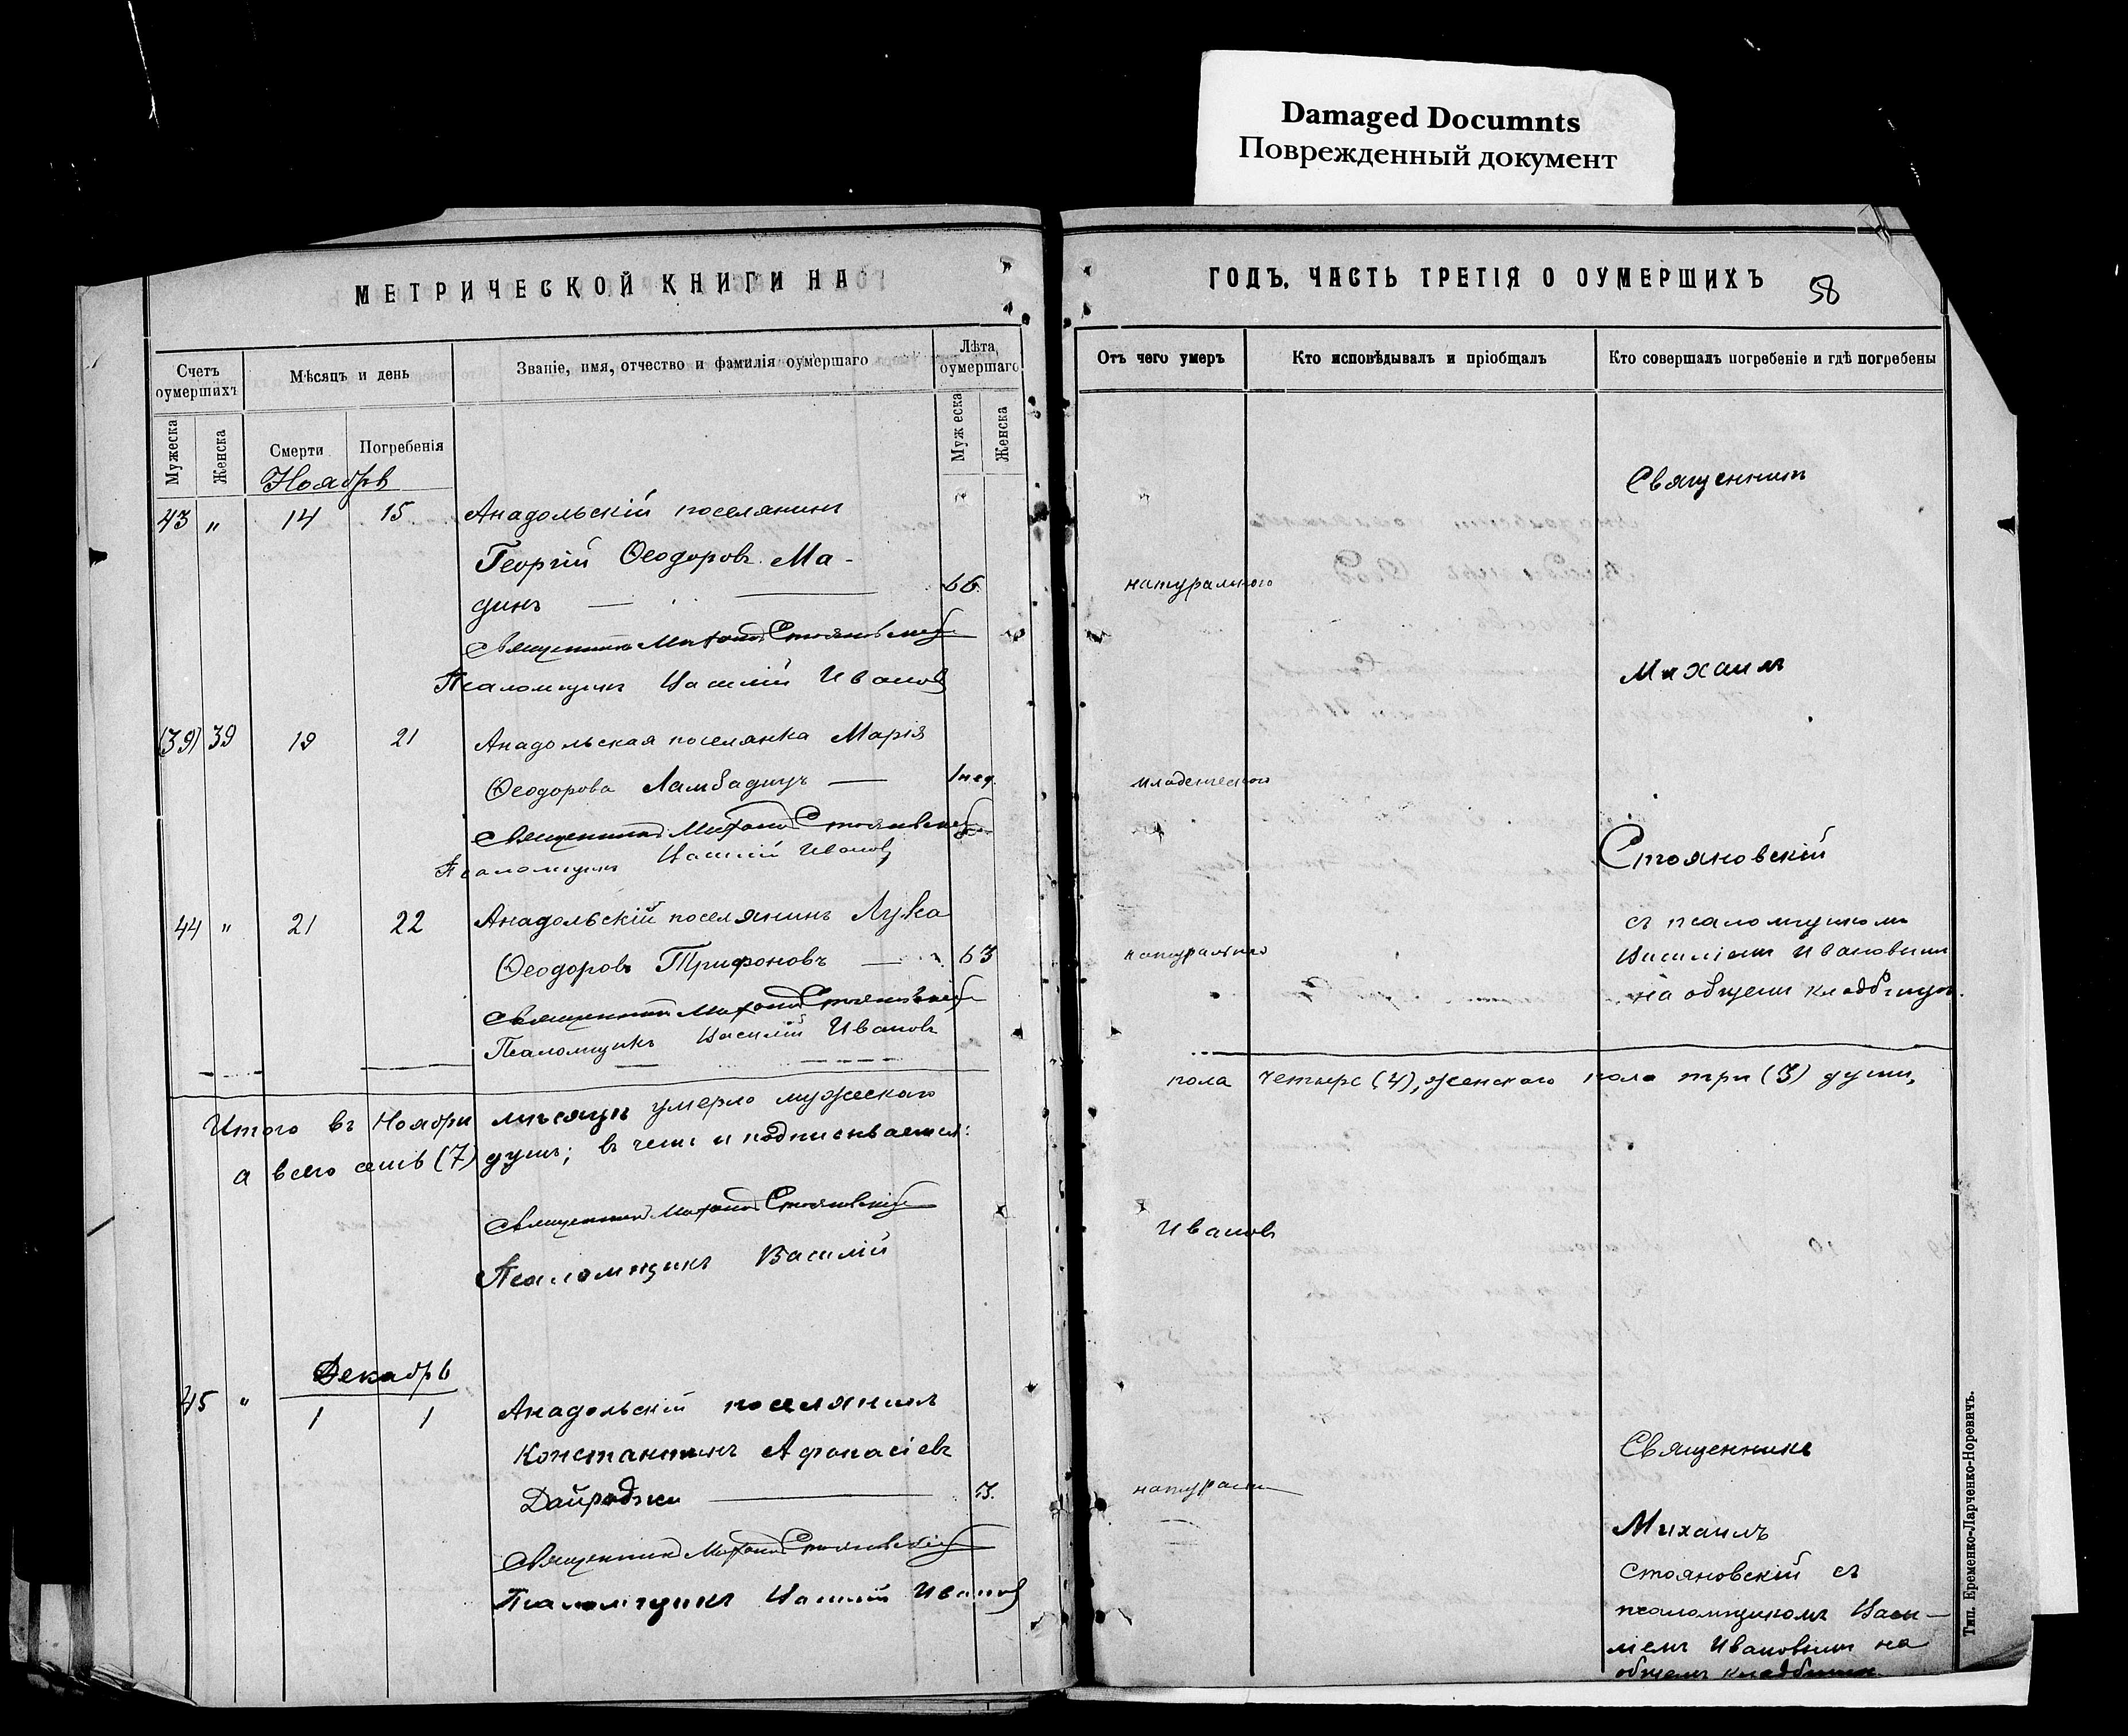 Damaged Documnts
Поврежденный документ
МЕТРИЧЕСКОЙ КНИГИ НА
ГОДЪ, ЧАСТЬ ТРЕТІЯ О ОУМЕРШИХЪ
58
Счетъ оумершихъ
Мѣсяцъ и день
Званіе, имя, отчество и фамилія оумершаго
Лѣта оумершаго
Мужеска
Женска
Смерти
Погребенія
Муж еска
Женска
Отъ чего умеръ
Кто исповѣдывалъ и пріобщалъ
Кто совершалъ погребеніе и гдѣ погребены
Ноябрь
43 " 14 15 Анадольскій поселянинъ
Георгій Ѳеодоровъ Ма-
динъ — 66
натуральнаго
Священникъ Михаилъ Стояновскій
Псаломщикъ Василій Ивановъ
(39) 39 19 21 Анадольская поселянка Марія
Ѳеодорова Ламбадицъ — 1 нед.
младенческаго
Священникъ Михаилъ Стояновскій
Псаломщикъ Василій Ивановъ
44 " 21 22 Анадольскій поселянинъ Лука
Ѳеодоровъ Трифоновъ — 63
натуральнаго
Священникъ Михаилъ Стояновскій
Псаломщикъ Василій Ивановъ
Священникъ
Михаилъ
Стояновскій
съ псаломщикомъ
Василіемъ Ивановымъ
на общемъ кладбищѣ.
Итого въ Ноябрѣ мѣсяцѣ умерло мужескаго пола четыре (4), женскаго пола три (3) души,
а всего семь (7) душъ; въ чемъ и подписываемся:
Священникъ Михаилъ Стояновскій
Псаломщикъ Василій Ивановъ
Декабрь
45 " 1 1 Анадольскій поселянинъ
Константинъ Афанасіевъ
Дайреджи — 3.
натуральн
Священникъ Михаилъ Стояновскій
Псаломщикъ Василій Ивановъ
Священникъ
Михаилъ
Стояновскій съ
псаломщикомъ Васи-
ліемъ Ивановымъ на
общемъ кладбищѣ.
Тип. Еременко-Ларченко-Норевичъ.